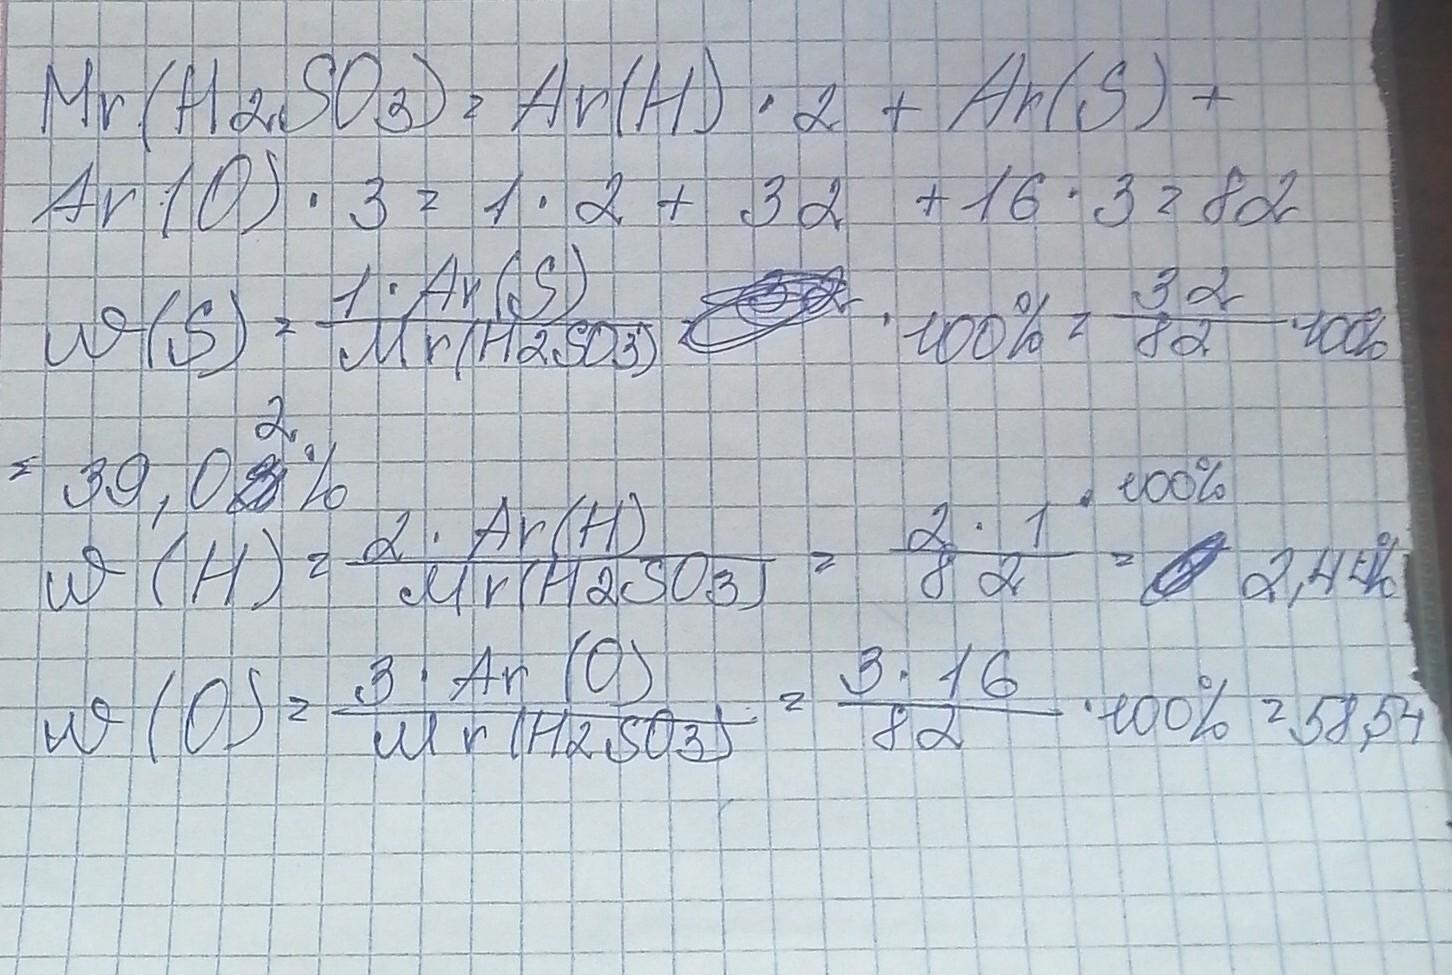 Mr(H2SO3) = Ar(H) · 2 + Ar(S) +
Ar(O) · 3 = 1 · 2 + 32 + 16 · 3 = 82
w(S) = 1 · Ar(S) / Mr(H2SO3) · 100% = 32 / 82 · 100%
= 39,02%
w(H) = 2 · Ar(H) / Mr(H2SO3) = 2 · 1 / 82 · 100% = 2,44%
w(O) = 3 · Ar(O) / Mr(H2SO3) = 3 · 16 / 82 · 100% = 58,54